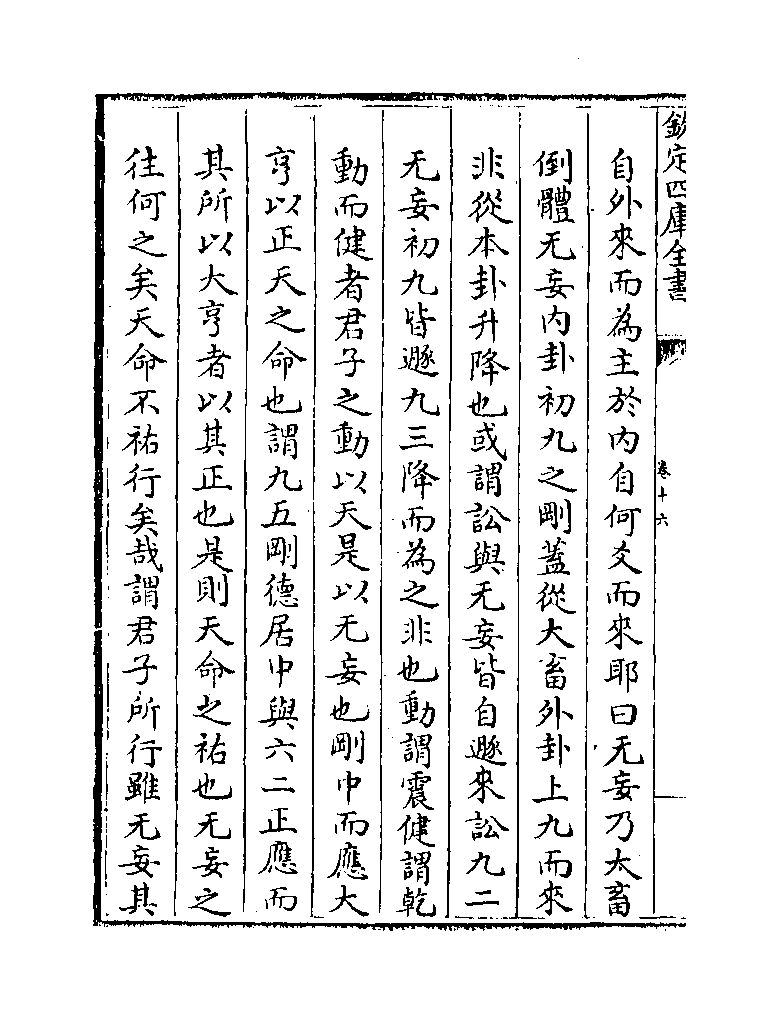 欽定四庫全書
卷十六
自外來而為主於内自何爻而來耶曰无妄乃大畜
倒體无妄内卦初九之剛蓋從大畜外卦上九而來
非從本卦升降也或謂訟與无妄皆自遯來訟九二
无妄初九皆遯九三降而為之非也動謂震健謂乾
動而健者君子之動以天是以无妄也剛中而應大
亨以正天之命也謂九五剛德居中與六二正應而
其所以大亨者以其正也是則天命之祐也无妄之
往何之矣天命不祐行矣哉謂君子所行雖无妄其